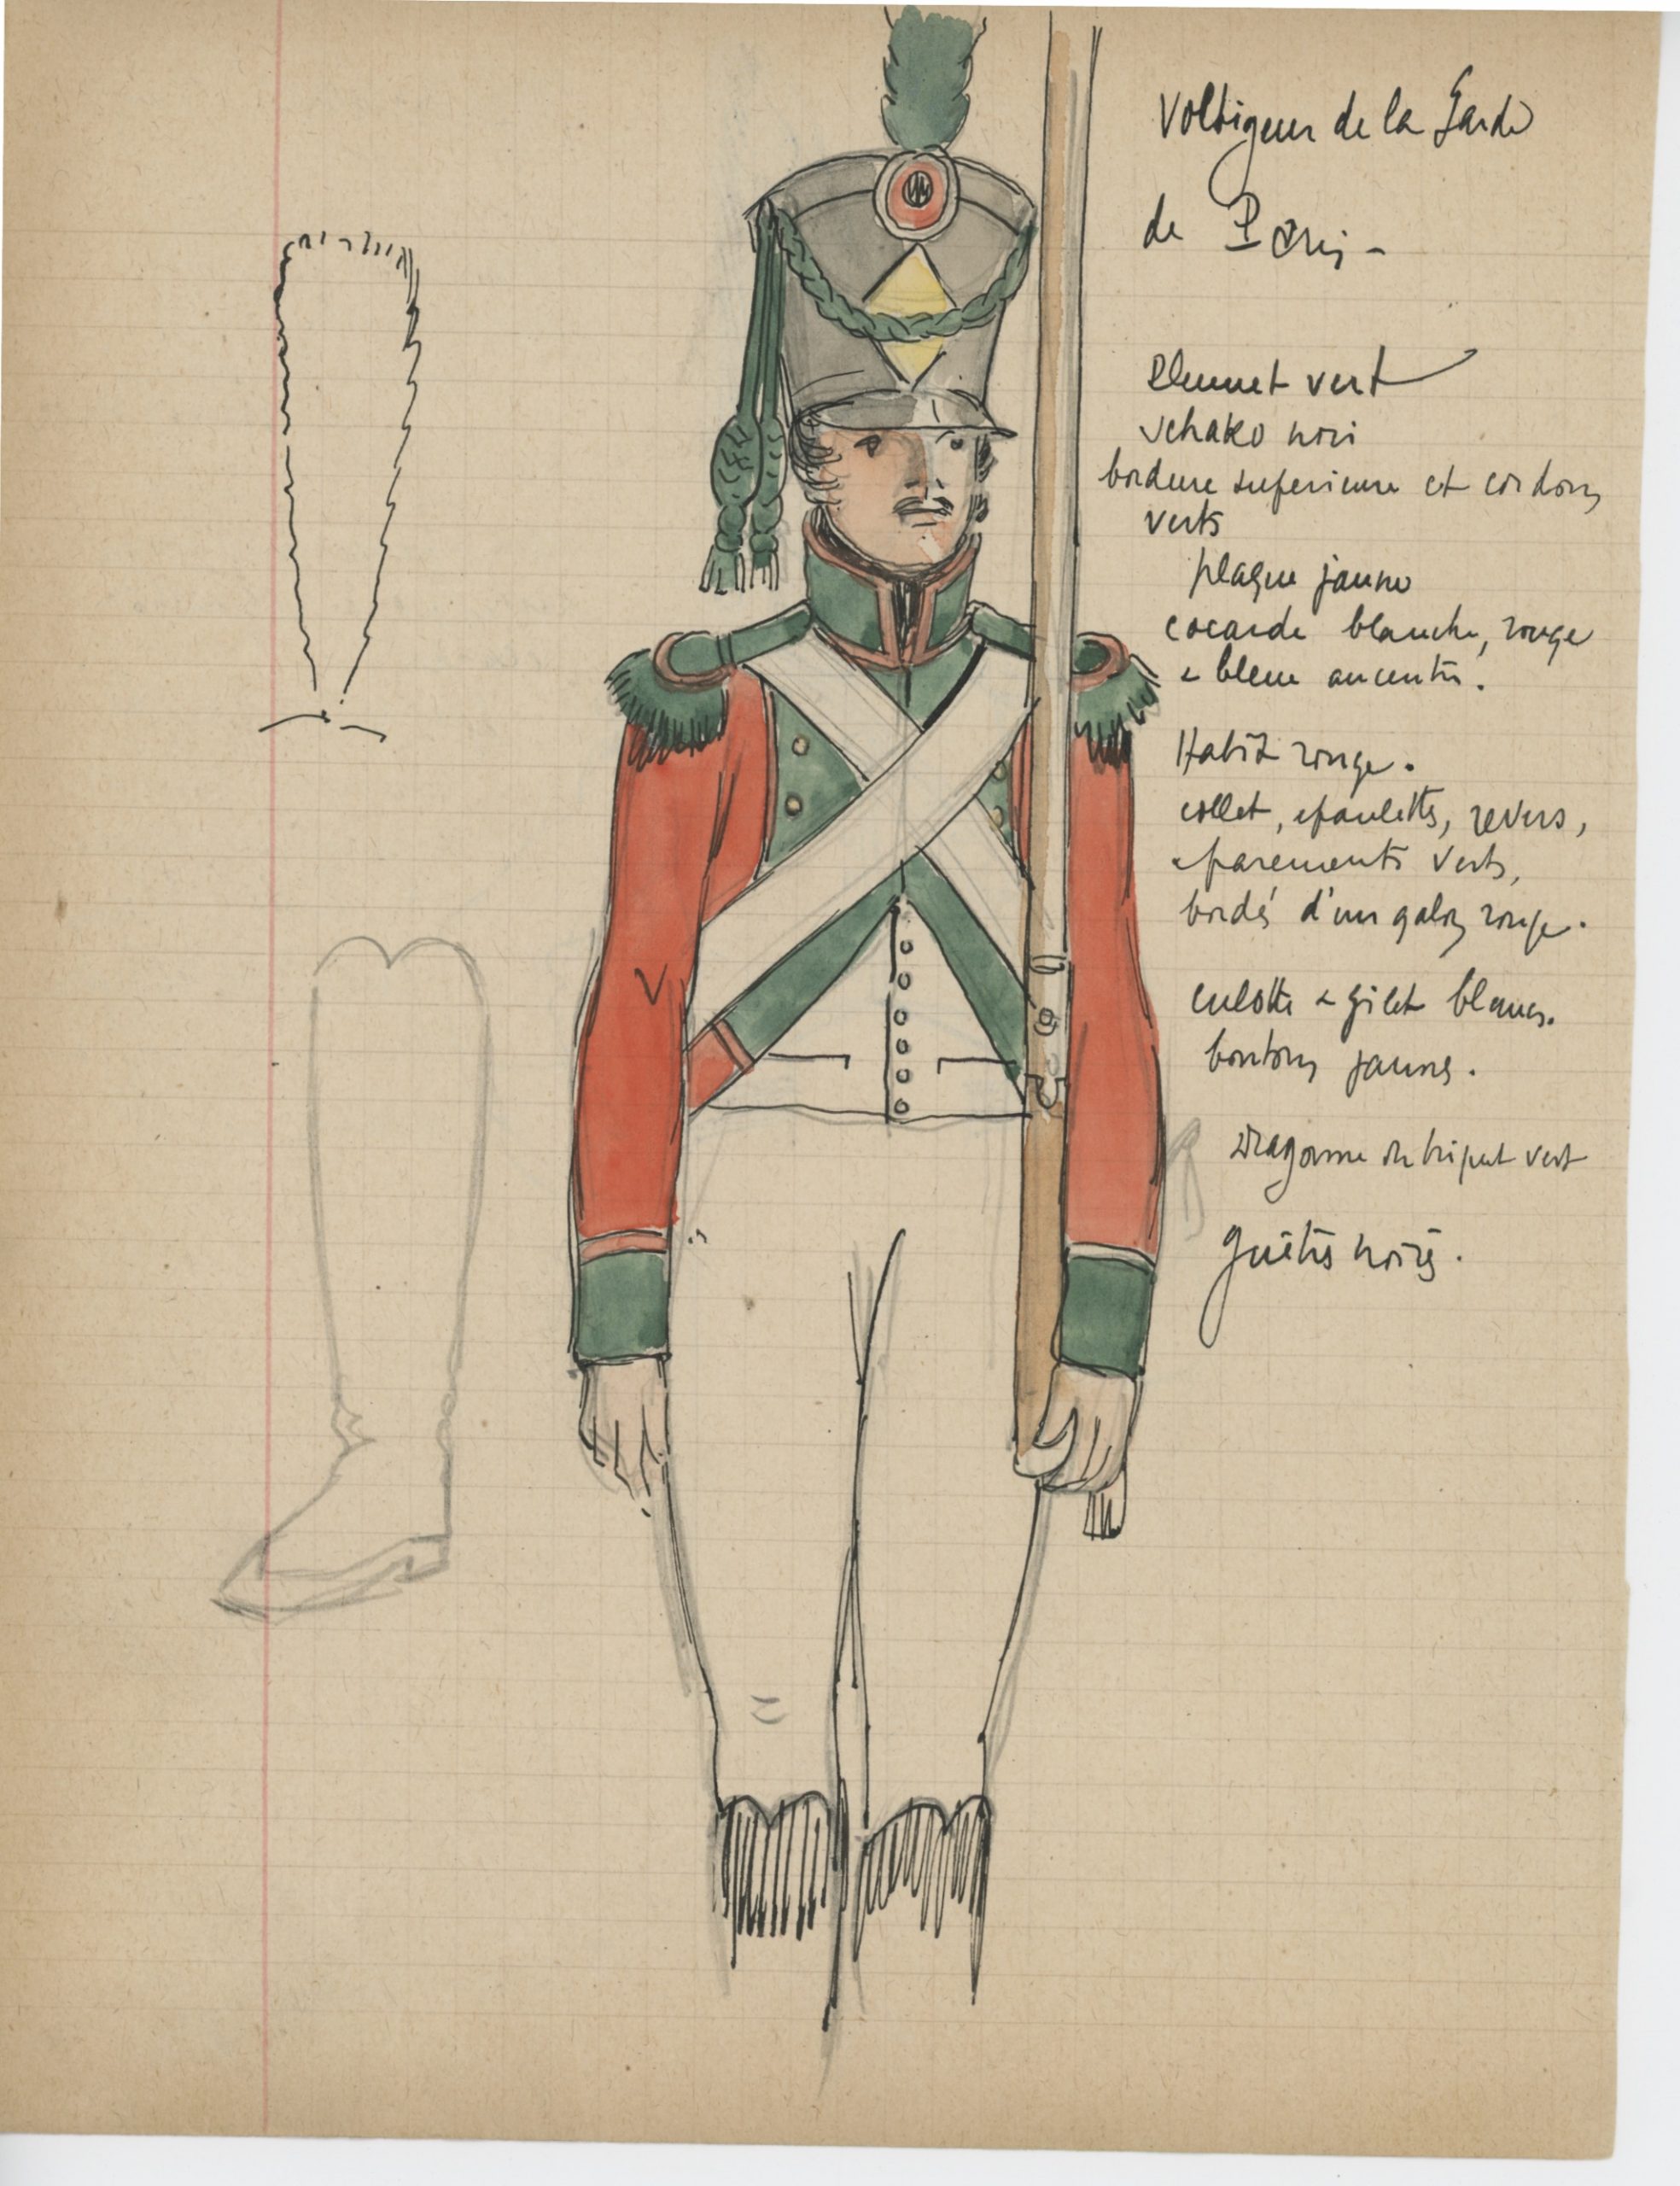 Voltigeur de la Garde
de Paris -
Plumet vert
schako noir
bordure superieure et cordons
verts
plaque jaune
cocarde blanche, rouge
& bleue au centre.
Habit rouge.
collet, epaulettes, revers,
& parements verts,
bordés d'un galon rouge.
culotte & gilet blancs.
boutons jaunes.
Dragonne de briquet vert
guêtres noires.